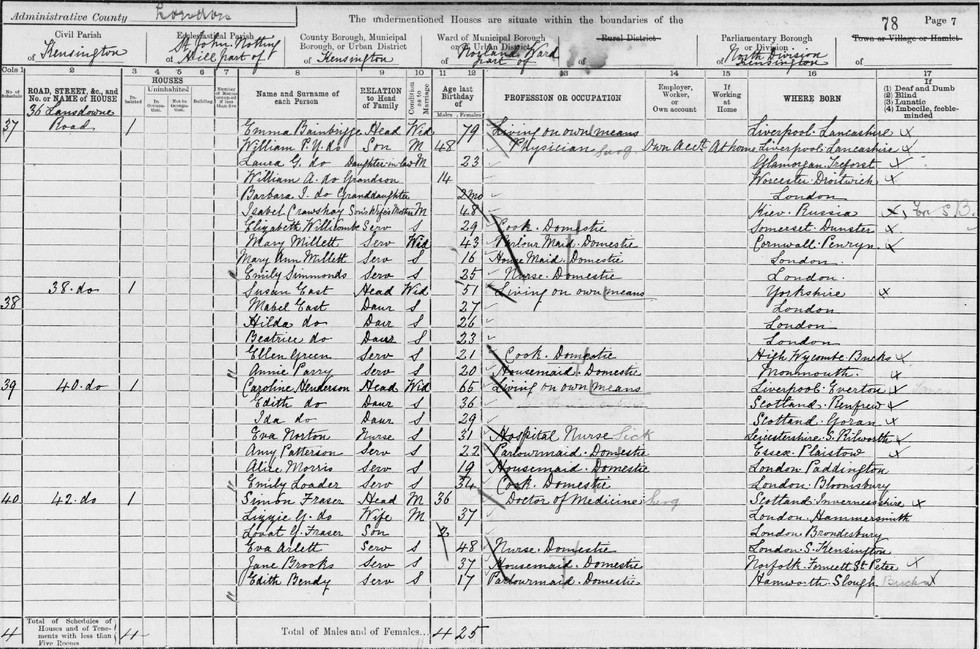 Administrative County London
The undermentioned Houses are situate within the boundaries of the
78 Page 7
Civil Parish
of Kensington
Ecclesiastical Parish
of St John Notting Hill part of
County Borough, Municipal Borough, or Urban District
of Kensington
Ward of Municipal Borough or of Urban District
of Norland Ward part of
Rural District
of
Parliamentary Borough or Division
of North Division Kensington
Town or Village or Hamlet
of
Cols 1 2 3 4 5 6 7 8 9 10 11 12 13 14 15 16 17
No. of Schedule
ROAD, STREET, &c., and No. or NAME of HOUSE
HOUSES
Inhabited
Uninhabited
In Occupation
Not in Occupation
Building
Number of Rooms occupied if less than five
Name and Surname of each Person
RELATION to Head of Family
Condition as to Marriage
Age last Birthday of
Males Females
PROFESSION OR OCCUPATION
Employer, Worker, or Own account
If Working at Home
WHERE BORN
If
(1) Deaf and Dumb
(2) Blind
(3) Lunatic
(4) Imbecile, feeble-minded
37 36 Lansdowne Road 1 Emma Bainbrigge Head Wid 79 Living on own means Liverpool Lancashire x
William P.Y. do Son M 48 Physician Surg Own Acct At home Liverpool Lancashire x
Laura G. do Daughter in law M 23 Glamorgan Treforst x
William A. do Grandson 14 Worcester Droitwich x
Barbara I. do Granddaughter 2 mo London
Isabel Crawshay Son's Wife's Mother M 48 Kiev Russia x
Elizabeth Willicombe Serv S 29 Cook Domestic Somerset Dunster x
Mary Millett Serv Wid 43 Parlour Maid Domestic Cornwall Penryn x
Mary Ann Millett Serv S 16 House Maid Domestic London
Emily Simmonds Serv S 25 Nurse Domestic London
38 38 do 1 Susan East Head Wid 51 Living on own means Yorkshire x
Mabel East Daur S 27 London
Hilda do Daur S 26 London
Beatrice do Daur S 23 London
Ellen Green Serv S 21 Cook Domestic High Wycombe Bucks x
Annie Parry Serv S 20 Housemaid Domestic Monmouth x
39 40 do 1 Caroline Henderson Head Wid 65 Living on own means Liverpool Everton x
Edith do Daur S 36 Scotland Renfrew x
Ida do Daur S 29 Scotland Govan x
Eva Norton Nurse S 31 Hospital Nurse Sick Leicestershire S. Kilworth x
Amy Patterson Serv S 22 Parlourmaid Domestic Essex Plaistow x
Alice Morris Serv S 19 Housemaid Domestic London Paddington
Emily Loader Serv S 34 Cook Domestic London Bloomsbury
40 42 do 1 Simon Fraser Head M 36 Doctor of Medicine Surg Scotland Invernesshire x
Lizzie G. do Wife M 37 London Hammersmith
Lovat G. Fraser Son 2 London Brondesbury
Eva Arlett Serv S 48 Nurse Domestic London S. Kensington
Jane Brooks Serv S 37 Housemaid Domestic Norfolk Forncett St Peter x
Edith Bendy Serv S 17 Parlourmaid Domestic Hamworth Slough Bucks x
4 Total of Schedules of Houses and of Tenements with less than Five Rooms 4 Total of Males and of Females... 4 25